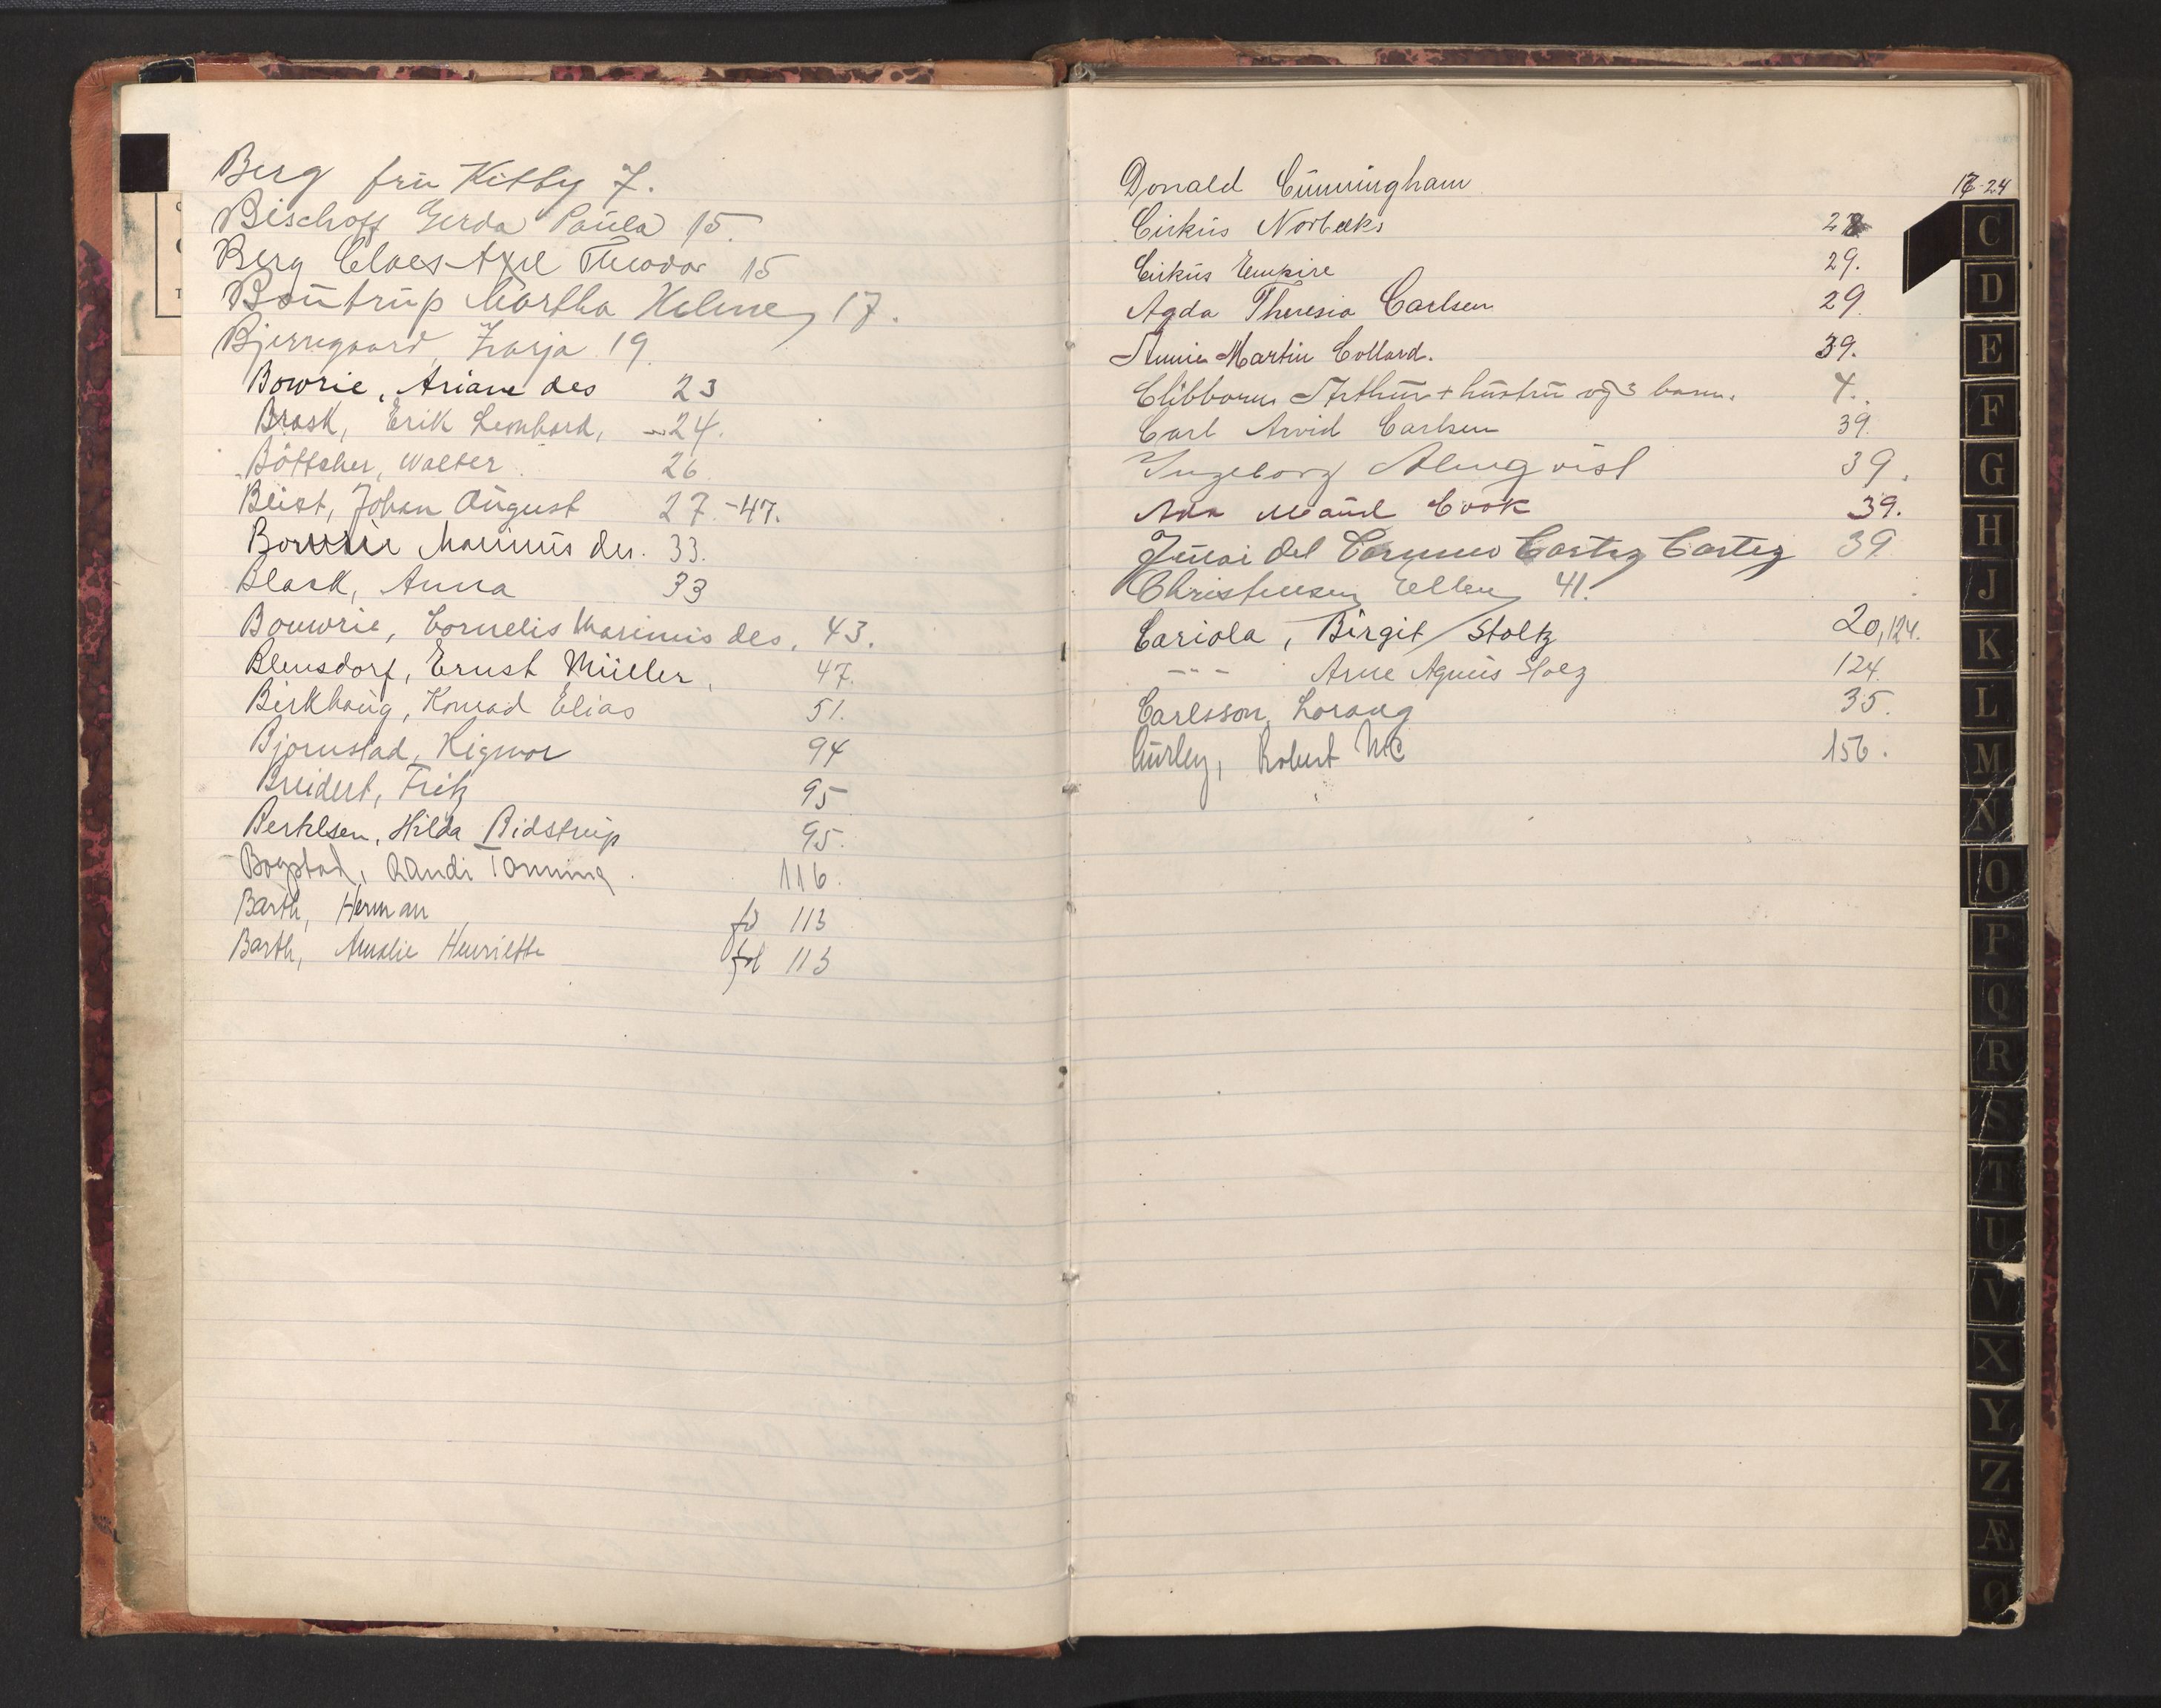 Berg fru Kitty 7.
Bischoff Gerda Paula 15.
Berg Claes Axel Theodor 15
Boutrup Martha Helene 17.
Bjerregaard, 19.
Bowrie, Ariane des 23
Brask, Erik Leonhard, 24.
Böttcher, Walter 26
Beist, Johan August 27.-47.
Bowrie Marinus des. 33.
Blask, Anna 33
Bouwrie, Cornelis Marinus des. 43.
Blensdorf, Ernst Müller, 47.
Birkhaug, Konrad Elias 51.
Bjornstad, Rigmor 94
Breidert, Fritz 95
Bertelsen, Hilda Bidstrup 95.
Bogstad, Randi Tonning 116.
Barth, Herman fol 113
Barth, Amalie Henriette fol 113
Donald Cunningham 17-24
Cirkus Norbeks 28
Cirkus Empire 29.
Agda Theresia Carlsen 29.
Annie Martin Collard. 39.
Clibborn Arthur + hustru og 3 barn. 4.
Carl Arvid Carlsen 39.
Ingeborg Almqvist 39.
Ada Maud Cook 39.
del Carmen Cortez Cortez 39
Christensen Ellen 41.
Cariola, Birgit Stoltz 20,124.
--- Arne Agnus Stolz 124.
Carlsson, Lorang 35.
Curley, Robert Mc 156.
C
D
E
F
G
H
J
K
L
M
N
O
P
Q
R
S
T
U
V
X
Y
Z
Æ
Ø